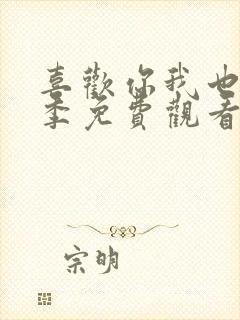 喜歡你我也
季免費觀看
宗明